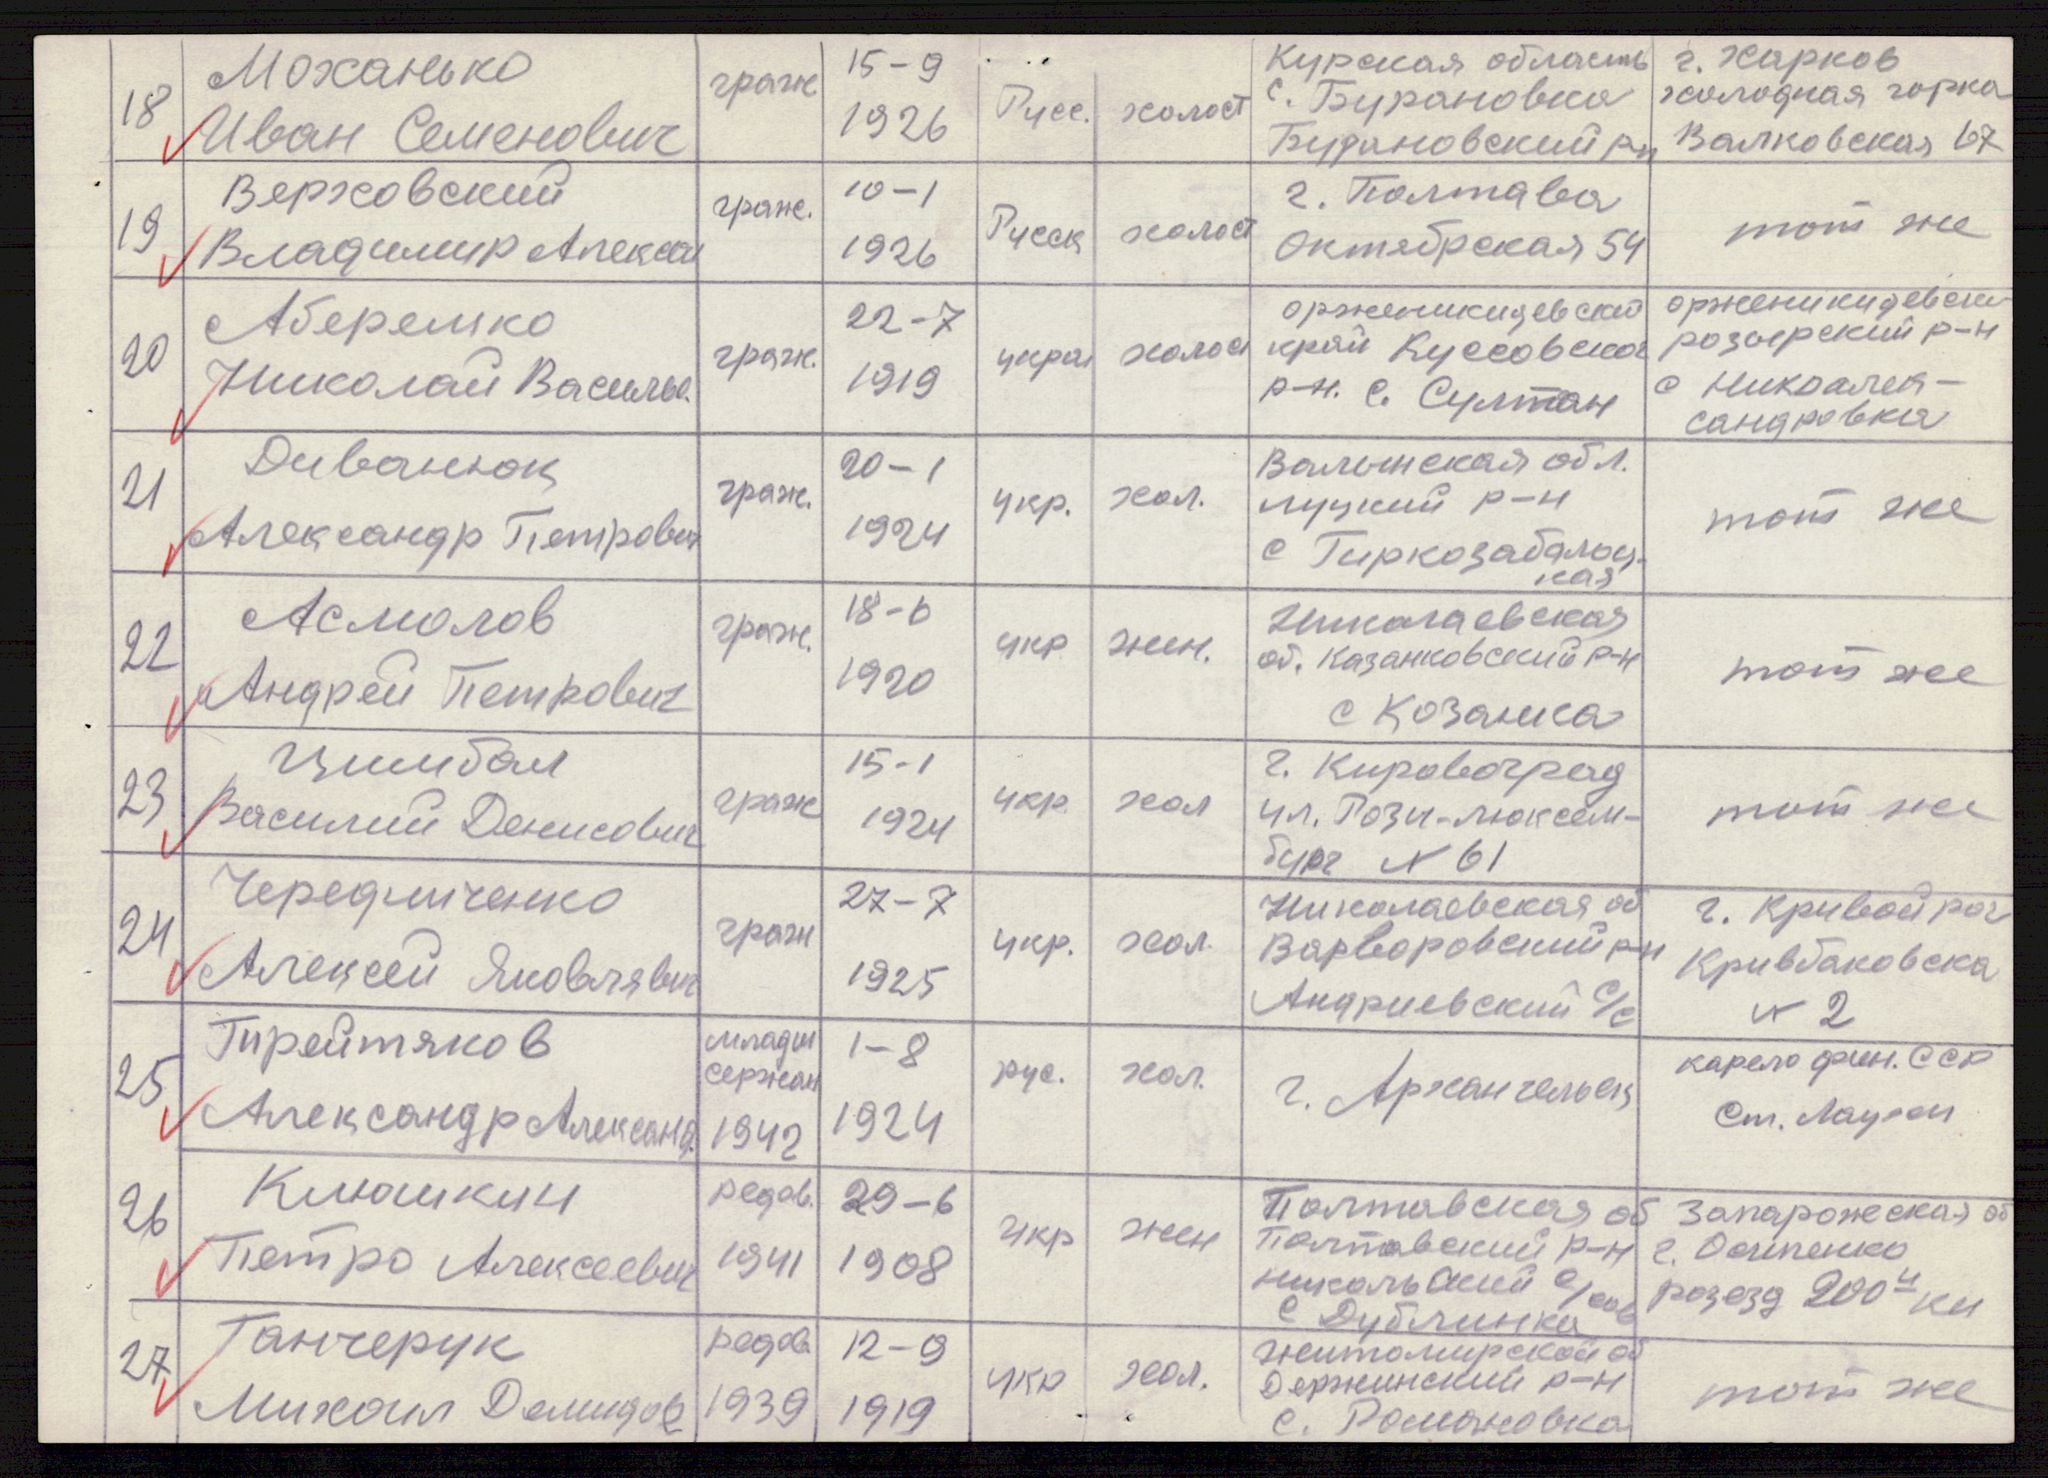 18
Моханько
Иван Семенович
граж
15-9
1926
Русс.
холост
Курская область
с. Бурановка
Бурановский р-н
г. Харков
холодная горка
Валковская 67
19
Верховский
Владимир Алексан
граж.
10-1
1926
Русск
холост
г. Полтава
Октябрская 54
тот же
20
Аберемко
Николай Василье.
граж.
22-7
1919
украи
холост
орженикидзевский
край Куссовской
р-н. с. Султан
орженикидзевски
р-н
с Никоалек-
сандровка
21
Диванюк
Александр Петрович
граж.
20-1
1924
укр.
хол.
Валынская обл.
луцкий р-н
с
кая
тот же
22
Асмолов
Андрей Петрович
граж.
18-6
1920
укр
жен.
Николаевская
об. Казанковский р-н
с Козанка
тот же
23
Цимбал
Василий Денисович
граж
15-1
1924
укр
хол
г. Кировоград
ул. Рози-люксем-
бург N 61
тот же
24
Чередниченко
Алексей Яковлявич
граж
27-7
1925
укр.
хол.
Николаевская об
Варворовский р-н
Андриевский с/с
г. Кривой рог
Кривбаковска
N 2
25
Прейтяков
Александр Александ.
младш
сержан
1942
1-8
1924
рус.
хол.
г. Архангельск
карело фин. ССР
ст.
26
Клюшкин
Петро Алексеевич
редов.
1941
29-6
1908
укр
жен
Полтавская об
Полтавский р-н
никольский с/сов
с Дублинка
Запарожеская об
г. Осипенко
розезд 200й км
27
Ганчерук
Михаил Демидов
редов
1939
12-9
1919
укр
хол.
житомирской об
Держинский р-н
с. Романовка
тот же